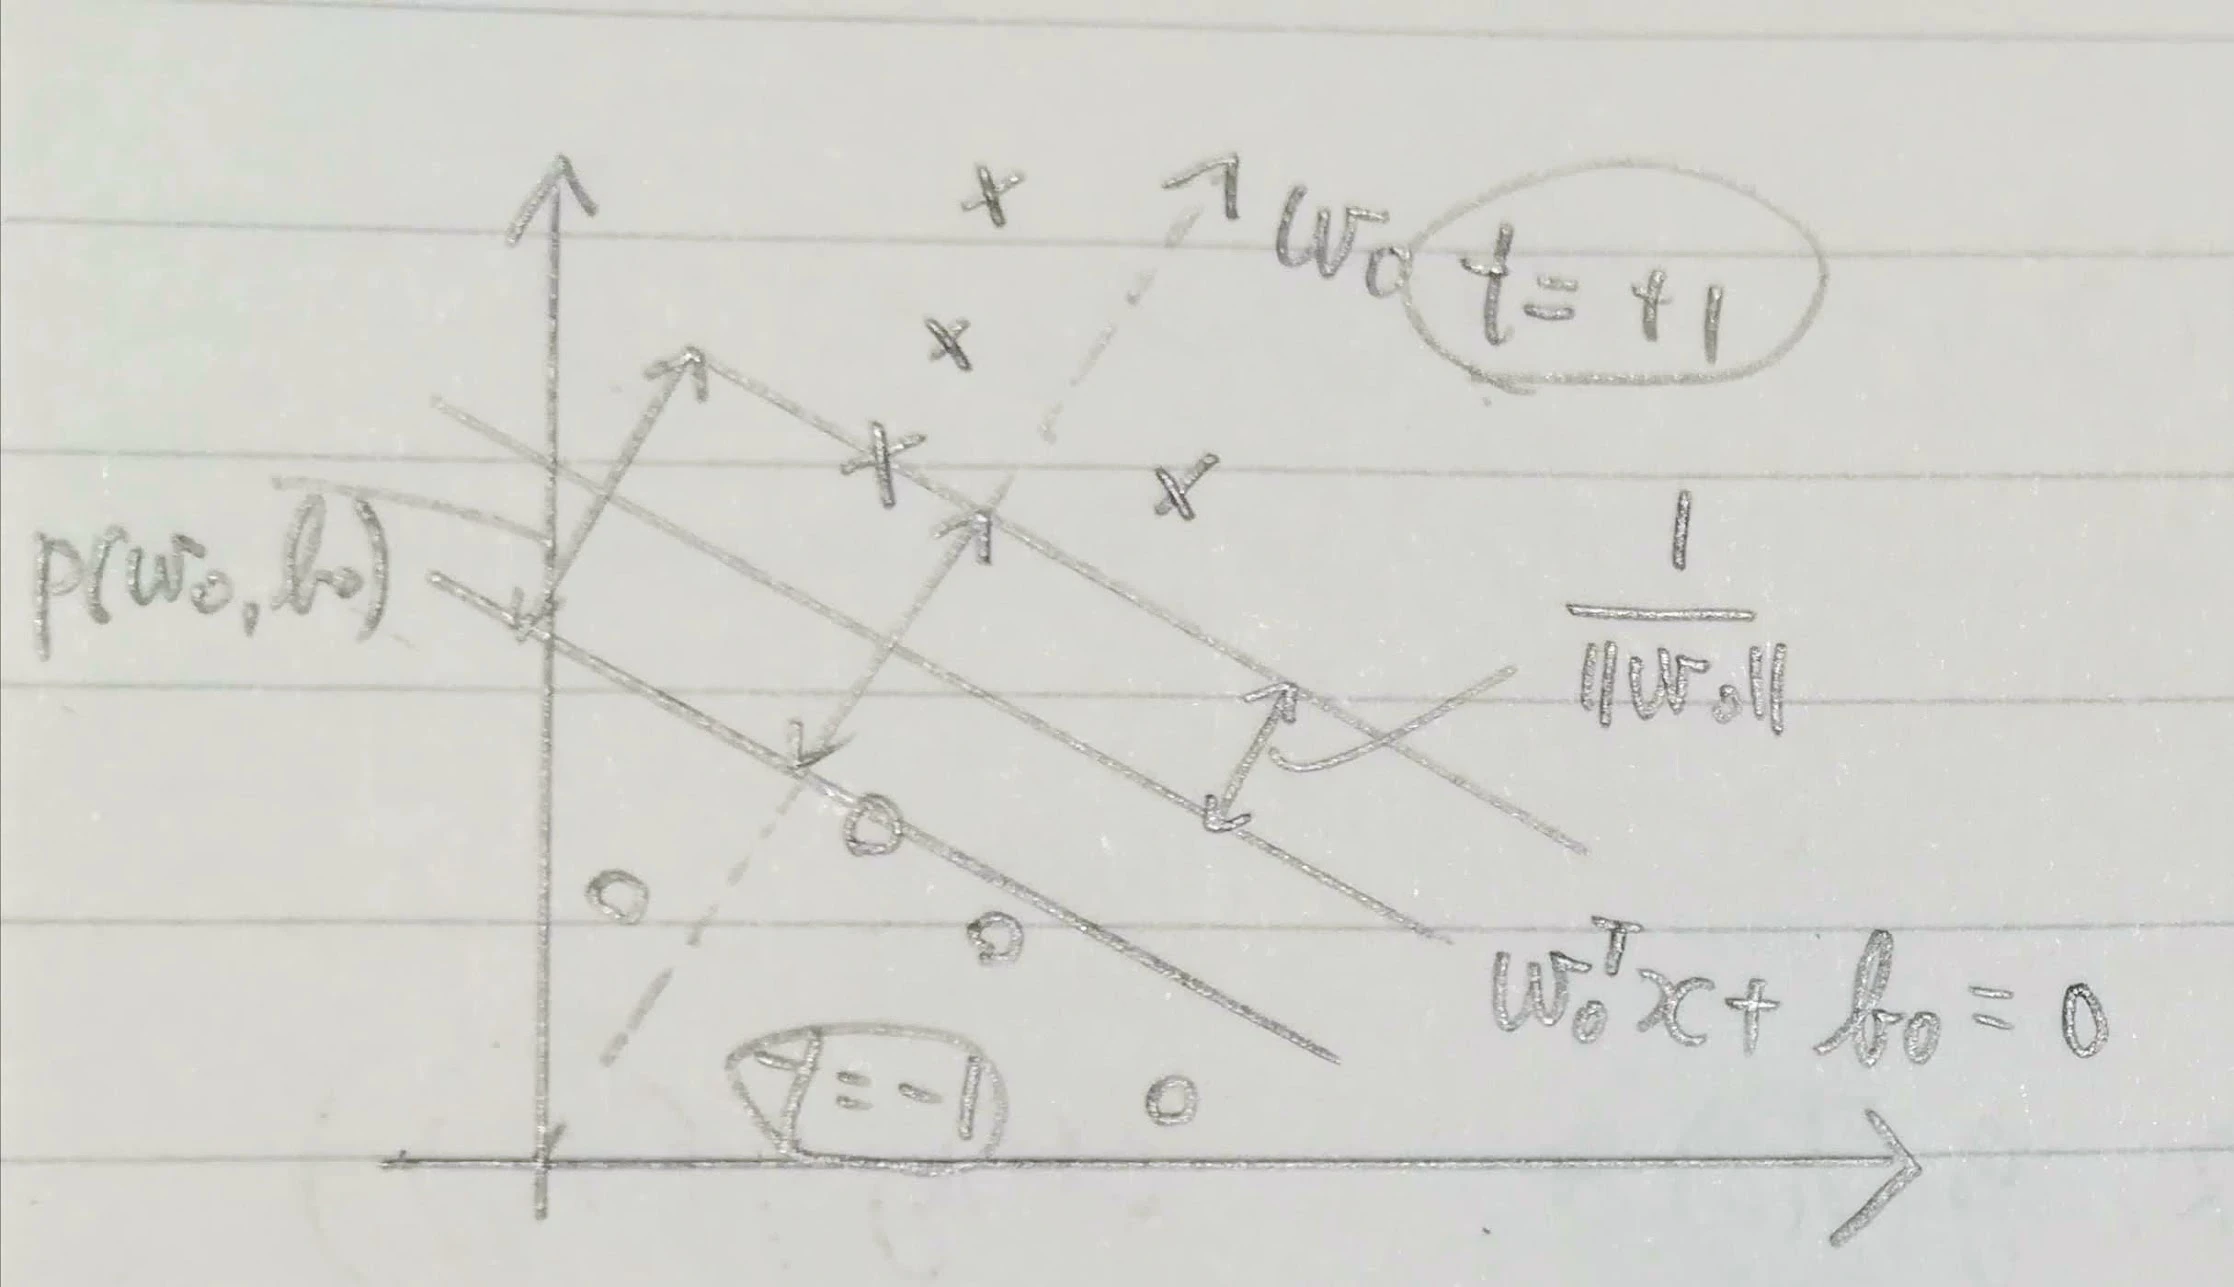 w₀
t = +1
p(w₀, b₀)
1
‖w₀‖
w₀ᵀx + b₀ = 0
t = -1